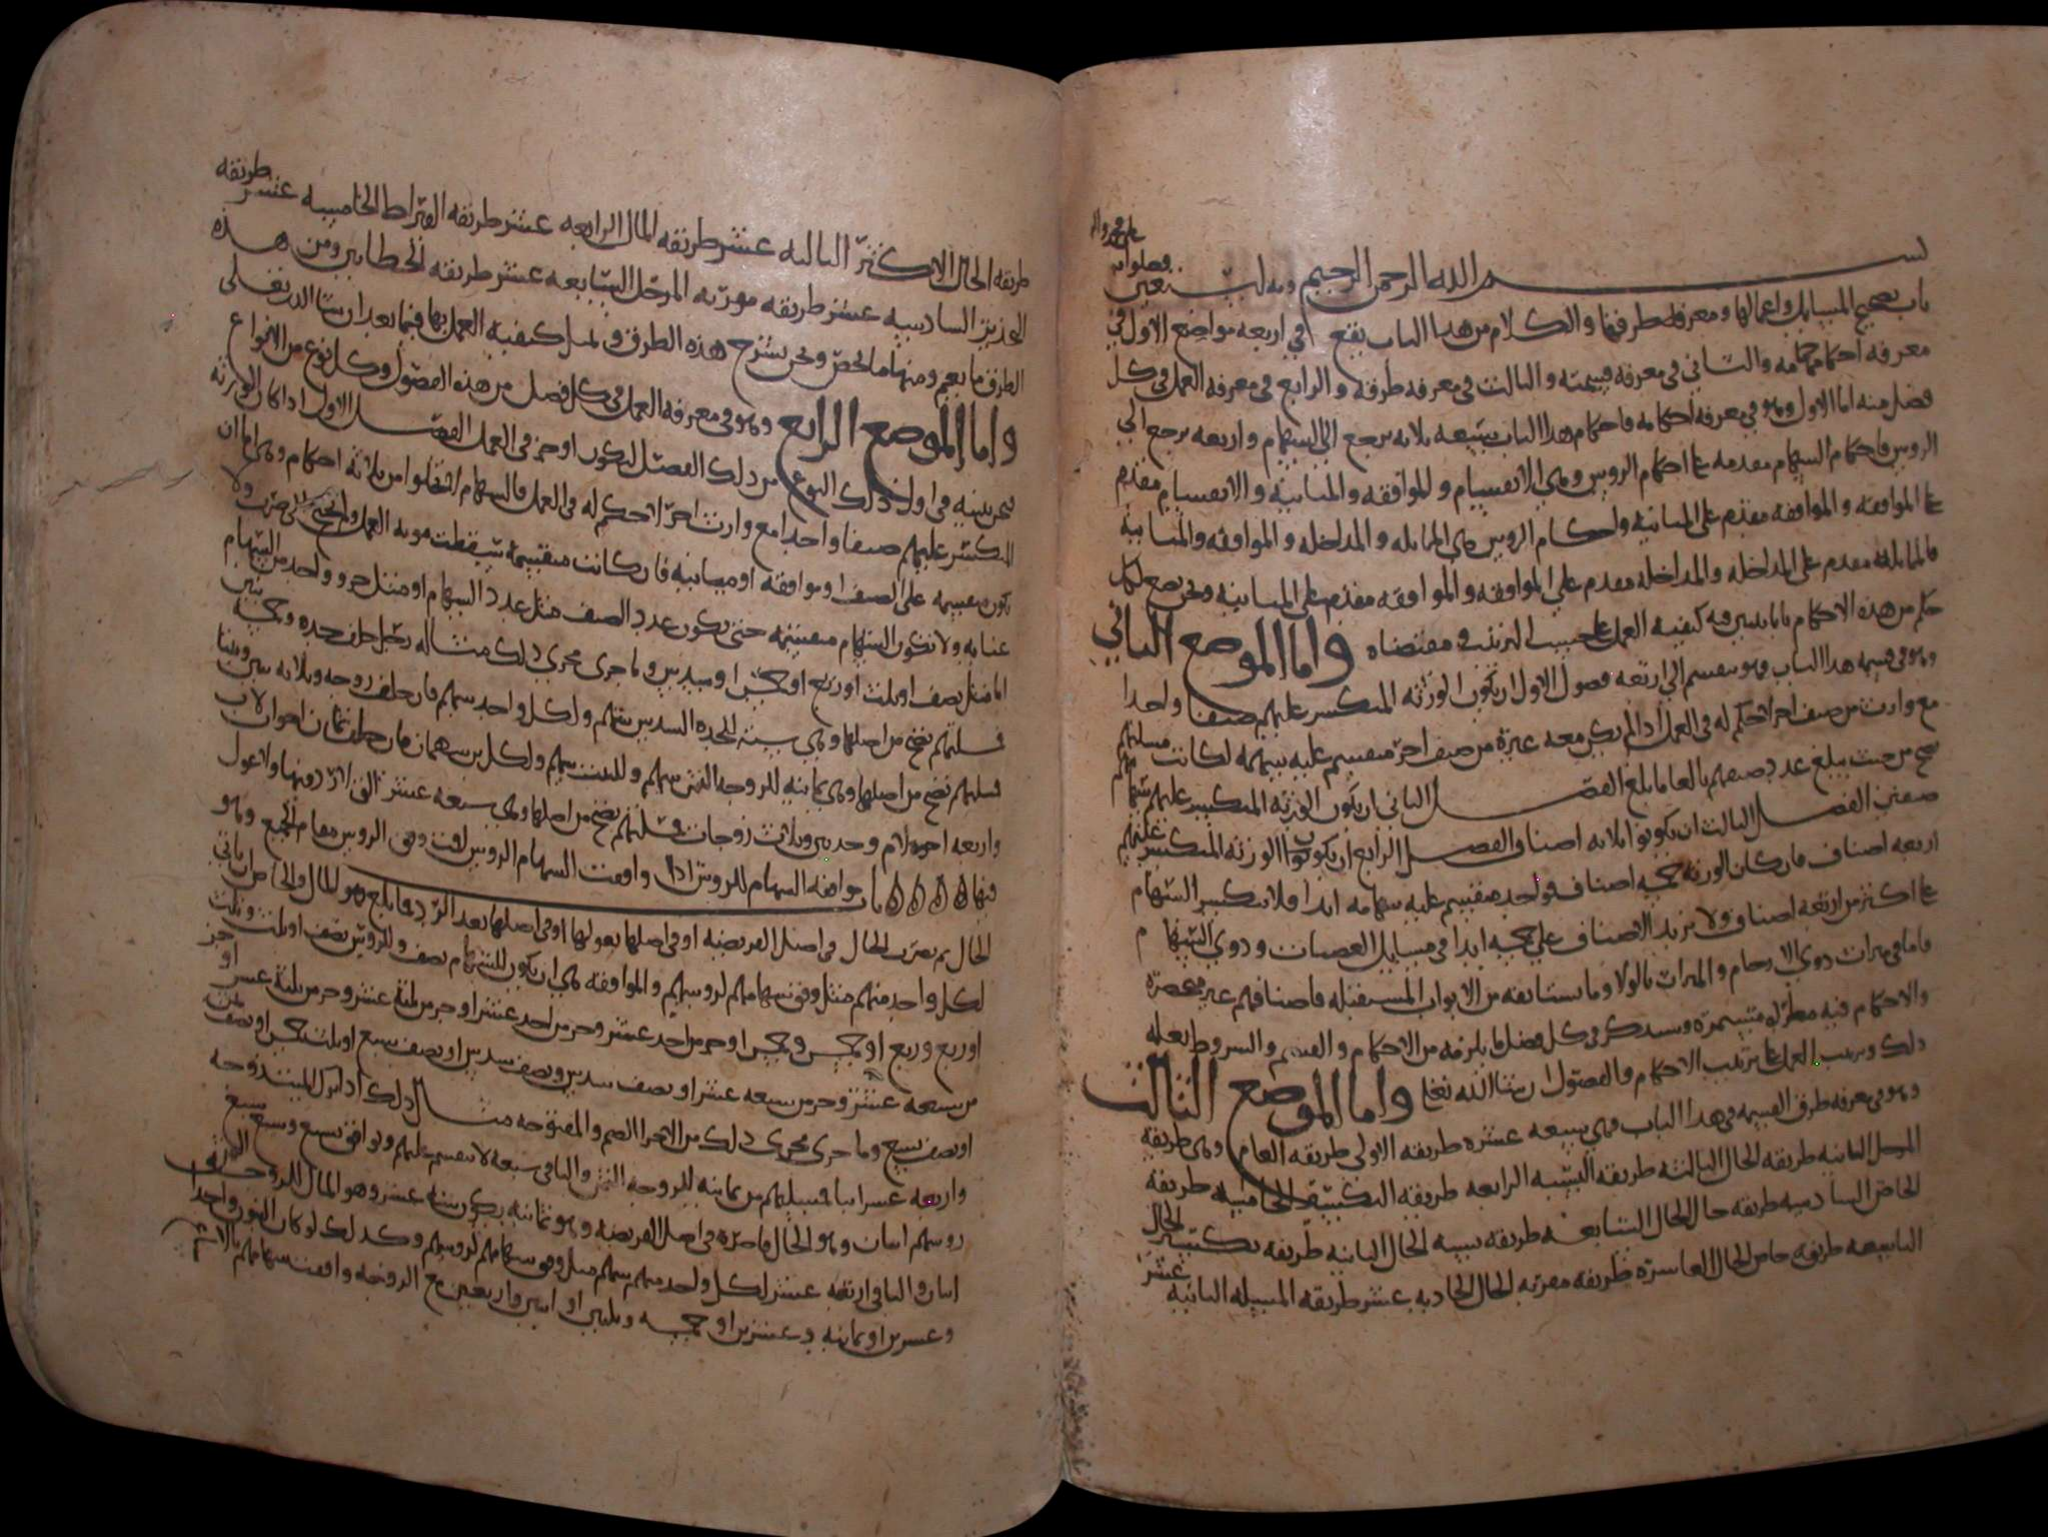 على محمد واله
بسم الله الرحمن الرحيم وبه نستعين وصلواته
باب تصحيح المسايل واعمالها ومعرفة طرقها والكلام من هذا الباب يقع في اربعة مواضع الاول في
معرفة احكامه والثاني في معرفة قسمته والثالث في معرفة طرقه والرابع في معرفة العمل في كل
فصل منه اما الاول وهو في معرفة احكامه فاحكام هذا الباب سبعة ثلاثة ترجع الى السهام واربعة ترجع الى
الروس فاحكام السهام مقدمة على احكام الروس وهي الانقسام والموافقة والمباينة والانقسام مقدم
على الموافقة والموافقة مقدم على المباينة واحكام الروس هي المماثلة والمداخلة والموافقة والمباينة
فالمماثلة مقدم على المداخلة والمداخلة مقدم على الموافقة والموافقة مقدم على المباينة ونحن نضع لكل
حكم من هذه الاحكام بابا نبين فيه كيفية العمل على حسب الترتيب ومقتضاه واما الموضع الثاني
وهو في قسمة هذا الباب وهو ينقسم الى اربعة فصول الاول ان يكون الورثة المنكسر عليهم صنفا واحدا
مع وارث من صنف اخر لا حكم له في العمل اذا لم يكن معه غيره من صنف اخر منقسم عليه سهمه لكانت مسلتهم
تصح من حيث يبلغ عدد صنفهم بالغا ما بلغ الفصل الثاني ان يكون الورثة المنكسر عليهم سهامهم
صنفين الفصل الثالث ان يكونوا ثلاثة اصناف الفصل الرابع ان يكونوا الورثة المنكسر عليهم
اربعة اصناف فان كان الورثة خمسة اصناف فواحد منقسم عليه سهامه ابدا فلا تنكسر السهام
على اكثر من اربعة اصناف ولا تزيد الاصناف على خمسة ابدا في مسايل العصبات وذوي السهام
فاما في ميراث ذوي الارحام والميراث بالولاء وما يستانفه من الابواب المستقبلة فاصنافهم غير منحصرة
والاحكام فيه مطردة مستمرة وسنذكر في كل فصل ما يلزمه من الاحكام والقسم والشروط بعد
ذلك وترتيب العمل على ترتيب الاحكام والفصول ان شا الله تعالى واما الموضع الثالث
وهو في معرفة طرق القسمة في هذا الباب فهي سبعة عشرة طريقة الاولى طريقة العام وهي طريقة
المرحل الثانية طريقة الحال الثالثة طريقة النسبة الرابعة طريقة الخامسة طريقة
الحاصل السادسة طريقة حال الحال السابعة طريقة نسبة الحال الثامنة طريقة الحال
التاسعة طريقة حاصل الحال العاشرة طريقة مفرته الحال الحادية عشر طريقة المسيلة الثانية عشر
طريقة الحال الاكثر الثالثة عشر طريقة المال الرابعة عشر طريقة القيراط الخامسة عشر طريقة
السادسة عشر طريقة المرحل السابعة عشر طريقة الخطاين ومن هذه
الطرق ما يعم ومنها ما يخص ونحن نشرح هذه الطرق كيفية العمل بها فيما بعد ان شا الله تعالى
واما الموضع الرابع وهو في معرفة العمل في كل فصل من هذه الفصول وكل نوع من الانواع
نحن نبينه في اول ذلك النوع من ذلك الفصل ليكون اوجز في العمل الفصل الاول اذا كان الورثة
المنكسر عليهم صنفا واحدا مع وارث اخر لا حكم له في العمل فالسهام من ثلاثة احكام وهي اما ان
تكون منقسمة على الصنف او موافقة او مباينة فان كانت منقسمة سقطت مونة العمل ولا
عناية ولا تكون السهام منقسمة حتى يكون عدد الصنف مثل عدد السهام او مثل جزو واحد من السهام
اما مثل نصف او ثلث او ربع او خمس او سدس وما جرى مجرى ذلك مثاله رجل خلف جده وخمسة بنين
فمسلتهم تصح من اصلها وهي ستة للجدة السدس سهم ولكل واحد سهم فان خلف زوجة وثلاثة بنين وبنتا
فمسلتهم تصح من اصلها وهي ثمانية للزوجة الثمن سهم وللبنت سهم ولكل بن سهمان فان خلف ثمان اخوات لاب
واربعة اخوة لام وجدتين وثلاث زوجات فمسلتهم تصح من اصلها وهي سبعة عشر
فيها باب موافقة السهام للروس اذا وافقت السهام الروس اقمت وفق الروس مقام الجميع وهو
الحال ثم يضرب الحال في اصل الفريضة او في اصلها بعولها او في اصلها بعد الرد فما بلغ فهو المال
لكل واحد منهم مثل وفق سهامهم لروسهم والموافقة هي ان يكون للسهام نصف وللروس نصف او ثلث وثلث
او ربع وربع او خمس وخمس او جزء من احد عشر وجزء من احد عشر او جزء من ثلثة عشر وجزء من ثلثة عشر او جزء
من سبعة عشر وجزء من سبعة عشر او نصف سدس ونصف سدس او نصف سبع
او نصف تسع وما جرى مجرى ذلك من الاجزا الصم والمفتوحة مثال ذلك اذا ترك الميت زوجة
واربعة عشر ابنا فمسيلتهم من ثمانية للزوجة الثمن والباقي سبعة لا تنقسم عليهم وتوافق بسبع وسبع
روسهم اثنان وهو الحال فاضربه في اصل الفريضة وهو ثمانية يكن ستة عشر وهو المال للزوجة الثمن
اثنان والباقي اربعة عشر لكل واحد منهم سهم مثل وفق سهامهم لروسهم وكذلك لو كان البنون واحدا
وعشرين او ثمانية وعشرين او خمسة وثلثين او اثنين واربعين مع الزوجة وافقت سهامهم